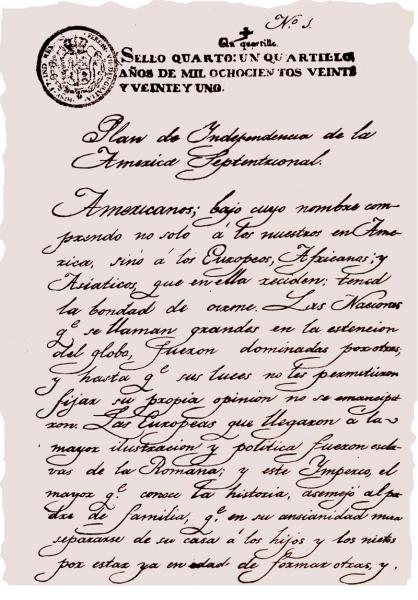 N.o 1.
Un quartillo.
SELLO QUARTO: UN QUARTILLO
AÑOS DE MIL OCHOCIENTOS VEINTE
Y VEINTE Y UNO.
Plan de Independencia de la
America Septentrional.
Americanos; bajo cuyo nombre com-
prendo no solo á los nuestros en Ame-
rica, sinó á los Europeos, Africanos; y
Asiaticos, que en ella reciden; tened
la bondad de oirme. Las Naciones
q.e se llaman grandes en la estencion
del globo, fueron dominadas por otras;
y hasta q.e sus luces no les permitieron
fijar su propia opinion no se emancipa-
ron. Las Européas que llegaron á la
mayor ilustracion y política fueron escla-
vas de la Romana; y este Imperio, el
mayor q.e conoce la historia, asemejó al pa-
dre de familia, q.e en su ansianidad mira
separarse de su casa á los hijos y los nietos
por estar ya en edad de formar otras, y